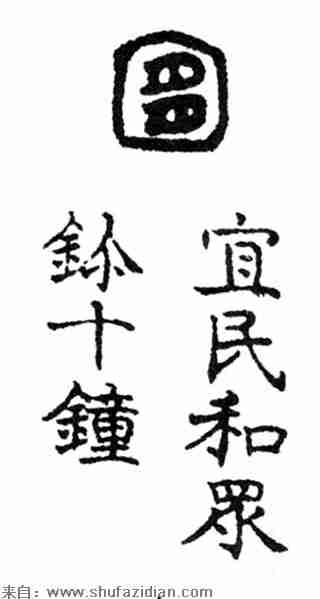 宜
宜民和眾
鉨十鐘
来自：www.shufazidian.com